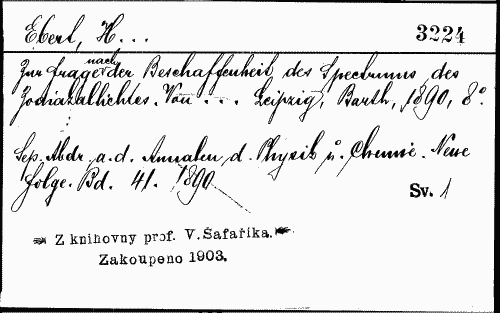 Ebert, H...
3224
Zur Frage nach der Beschaffenheit des Spectrums des
Zodiakallichtes. Von ... Leipzig, Barth, 1890, 8°.
Sep. Abdr. a. d. Annalen d. Physik u. Chemie. Neue
Folge. Bd. 41. 1890
Sv. 1
Z knihovny prof. V. Šafaříka.
Zakoupeno 1903.